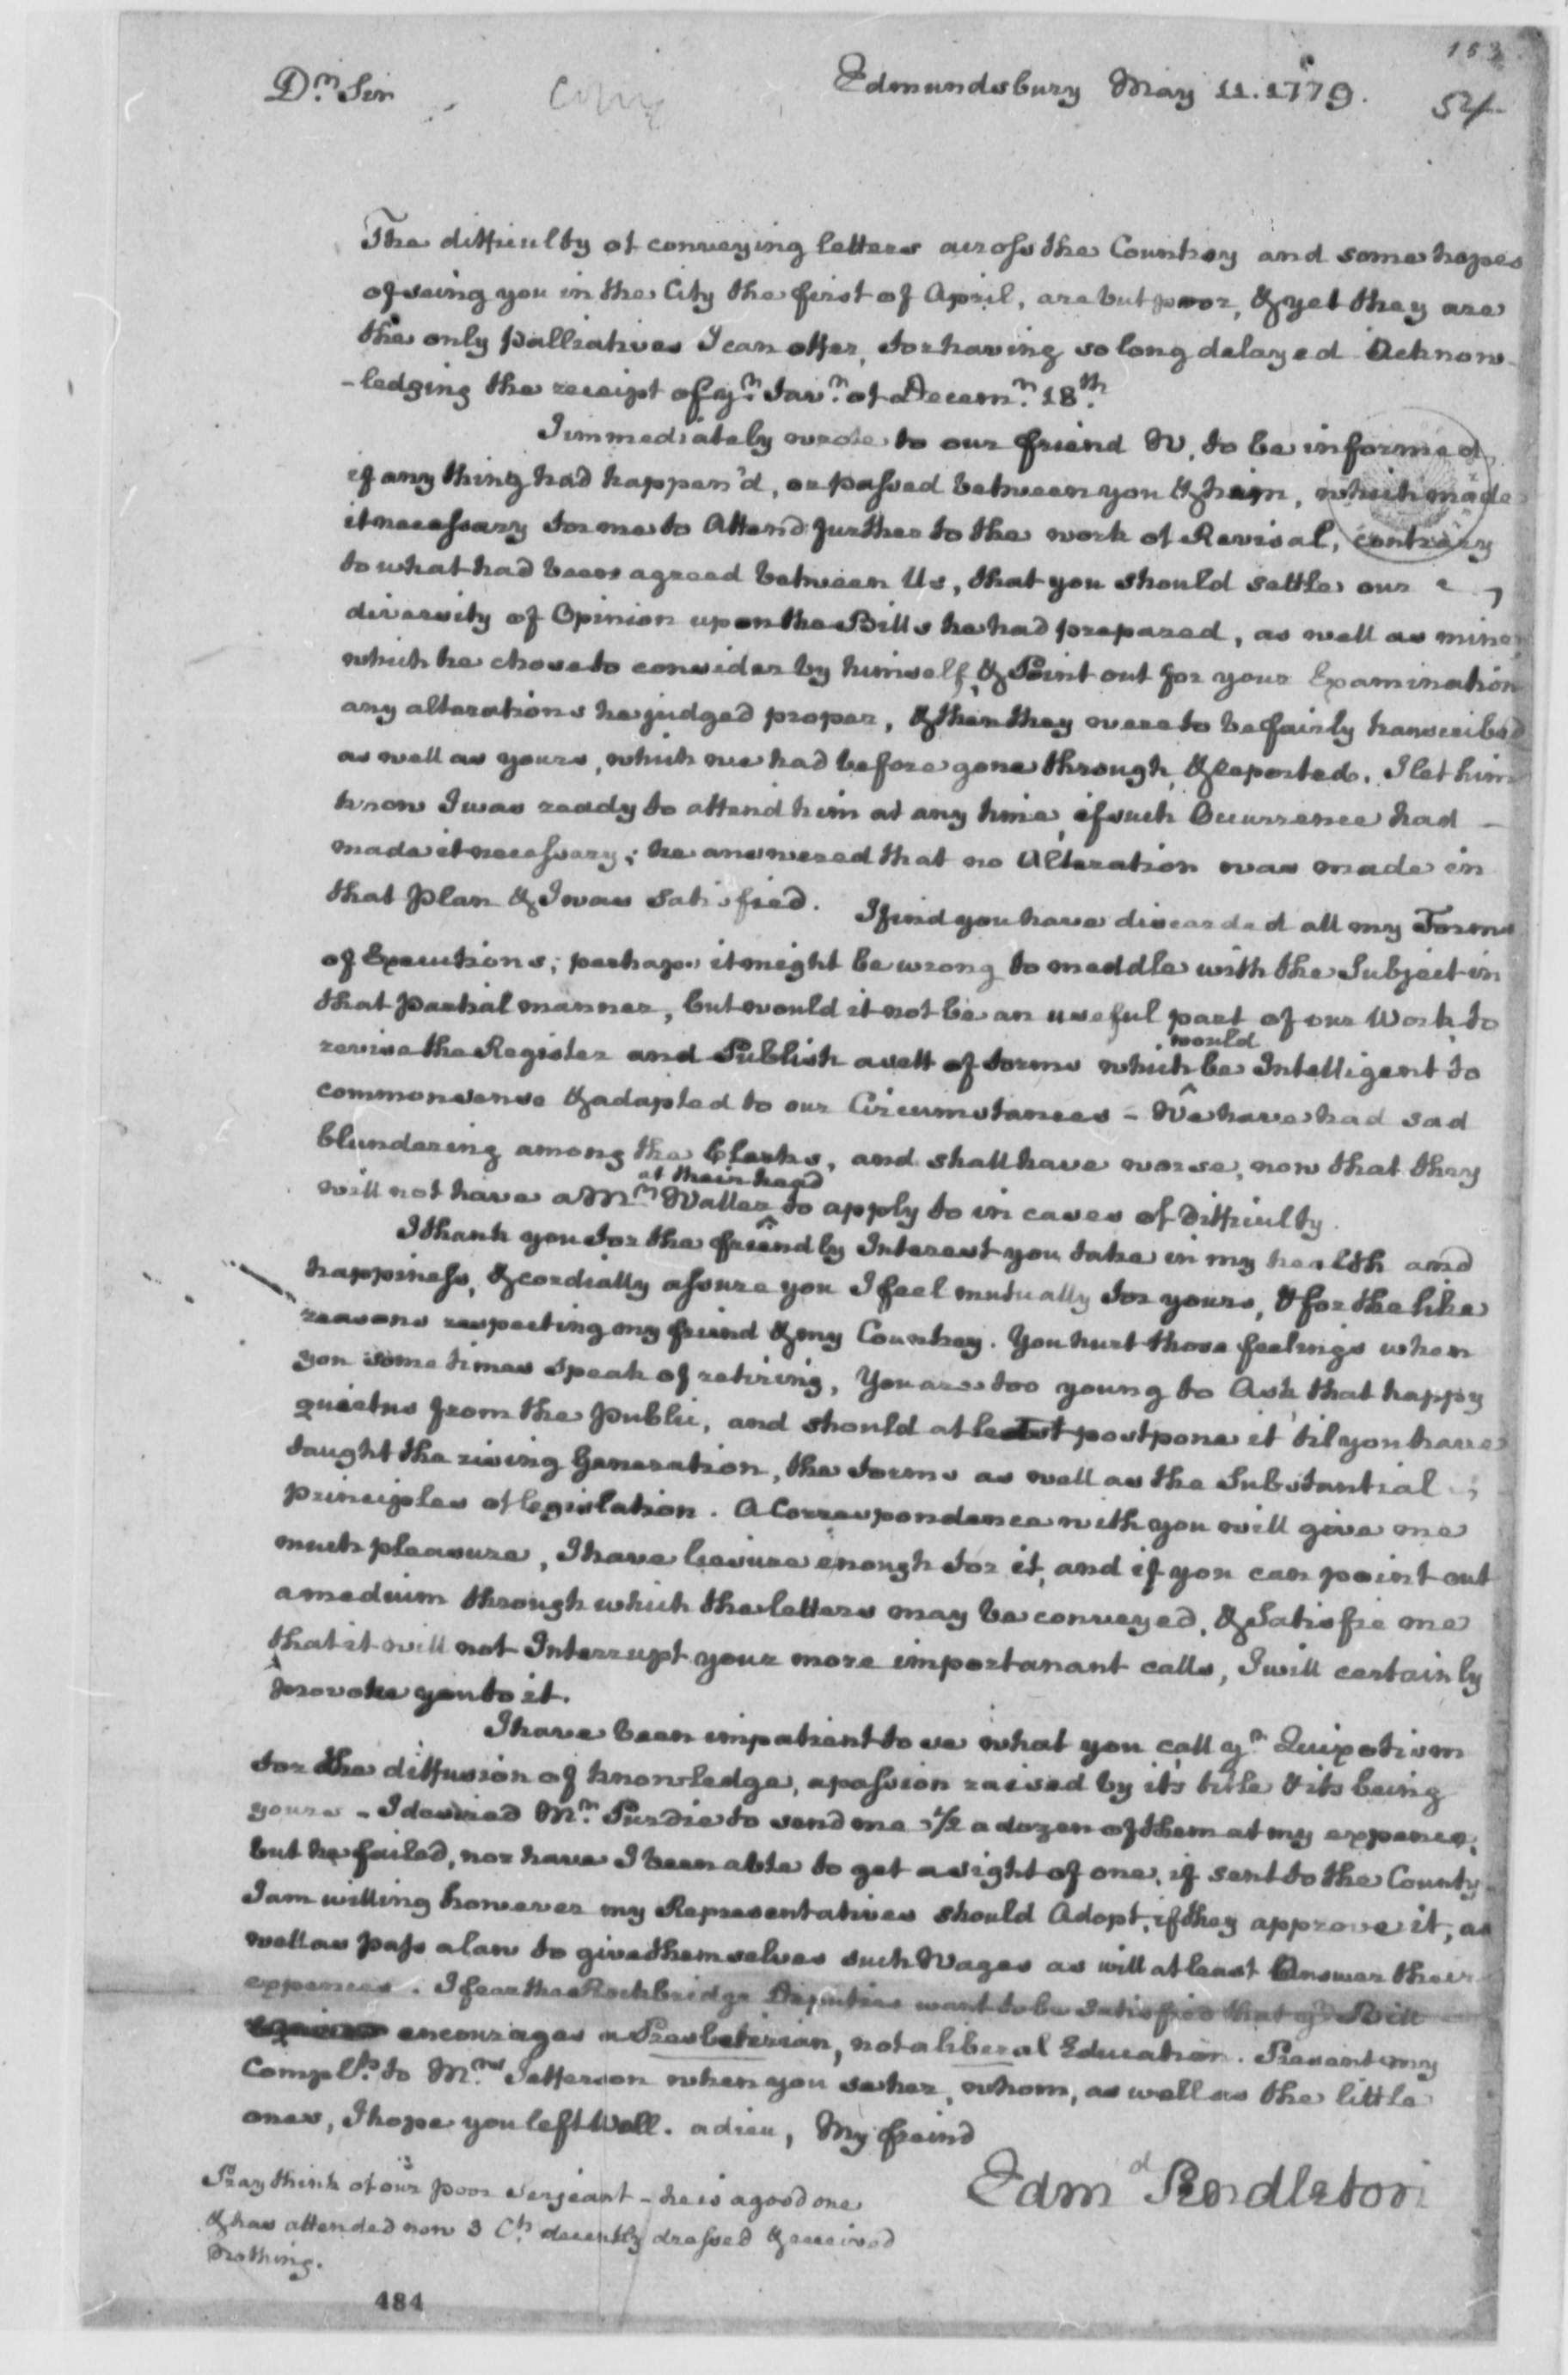 153
Dr. Sir
Copy
Edmundsbury May 11. 1779.
54
The difficulty of conveying letters across the Country and some hopes
of seing you in the City the first of April, are but poor, & yet they are
the only Palliatives I can offer, for having so long delayed Acknow-
-ledging the receipt of yr. Favr. of Decemr. 18th.
I immediately wrote to our friend W. to be informed
if any thing had happen'd, or passed between you & him, which made
it necessary for me to Attend further to the work of Revisal, contrary
to what had been agreed between Us, that you should settle our
diversity of Opinion upon the Bills he had prepared, as well as mine,
which he chose to consider by himself, & Point out for your Examination
any alterations he judged proper, & then they were to be fairly transcribed
as well as yours, which we had before gone through, & reported. I let him
know I was ready to attend him at any time, if such Occurrence had
made it necessary; he answered that no Alteration was made in
that Plan & I was Satisfied. I find you have discarded all my Forms
of Executions; perhaps it might be wrong to meddle with the Subject in
that Partial manner, but would it not be an useful part of our Work, to
revise the Register and Publish a sett of forms which would be Intelligent to
common sense & adapted to our Circumstances - We have had sad
blundering among the Clerks, and shall have worse, now that they
will not have a Mr. Waller at their head to apply to in cases of difficulty.
I thank you for the friendly Interest you take in my health and
happiness, & cordially assure you I feel mutually for yours, & for the like
reasons respecting my friend & my Country. You hurt those feelings when
you some times speak of retiring, You are too young to Ask that happy
quietus from the Public, and should at least postpone it 'til you have
taught the rising Generation, the forms as well as the Substantial
principles of legislation. A Correspondence with you will give me
much pleasure, I have liesure enough for it, and if you can point out
a meduim through which the letters may be conveyed, & Satisfie me
that it will not Interrupt your more importanant calls, I will certainly
provoke you to it.
I have been impatient to se what you call yr. Quixotism
for the diffusion of knowledge, a passion raised by it's title & its being
yours - I desired Mr. Purdie to send me 1/2 a dozen of them at my expence,
but he failed, nor have I been able to get a sight of one, if sent to the County.
I am willing however my Representatives should Adopt, if they approve it, as
well as pass a law to give themselves such Wages as will at least Answer their
expences. I fear the Rockbridge Deputies want to be Satisfied that yr. Bill
encourages a Presbeterian, not a liberal Education. Present my
Complts. to Mrs. Jefferson when you se her, whom, as well as the little
ones, I hope you left Well. adieu, My freind
Edmd Pendleton
Pray think of our poor Serjeant - he is a good one
& has attended now 3 Cts. decently dressed & received
Nothing.
484